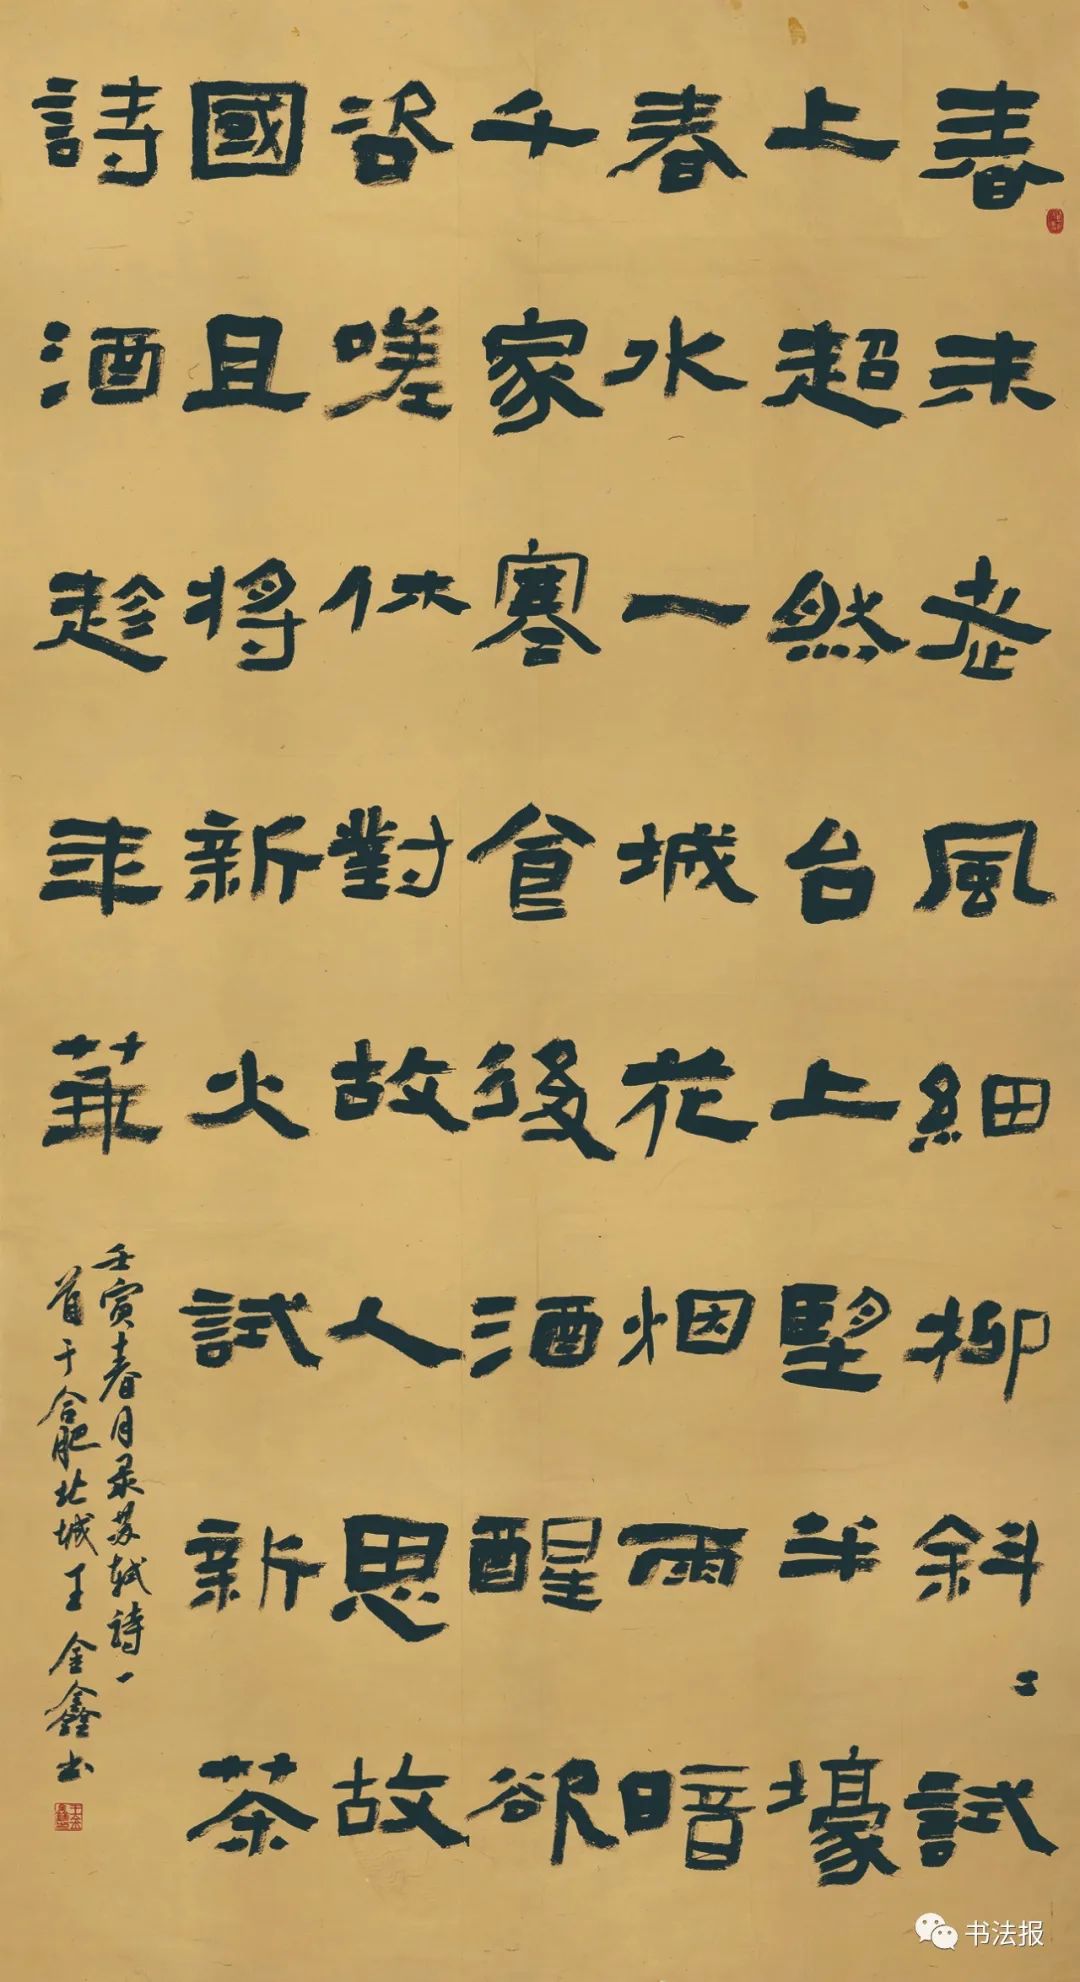 春未老風細柳斜〻試
上超然台上望半壕
春水一城花烟雨暗
千家寒食後酒醒欲
咨嗟休對故人思故
國且將新火試新茶
詩酒趁年華
壬寅春月录苏轼詩一
首于合肥北城王金鑫书
书法报